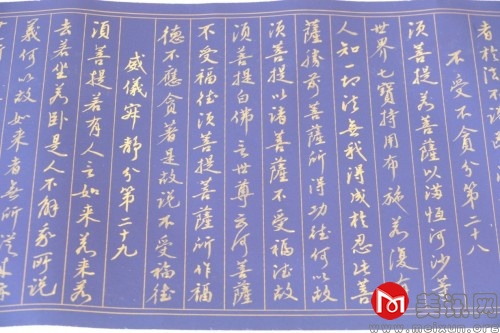 者於法不說
不受不貪分第二十八
須菩提若菩薩以滿恒河沙等
世界七寶持用布施若復有
人知一切法無我得成於忍此菩
薩勝前菩薩所得功德何以故
須菩提以諸菩薩不受福德故
須菩提白佛言世尊云何菩薩
不受福德須菩提菩薩所作福
德不應貪著是故說不受福德
威儀寂靜分第二十九
須菩提若有人言如來若來若
去若坐若臥是人不解我所說
義何以故如來者無所從來亦
美讯网
www.meixun.org